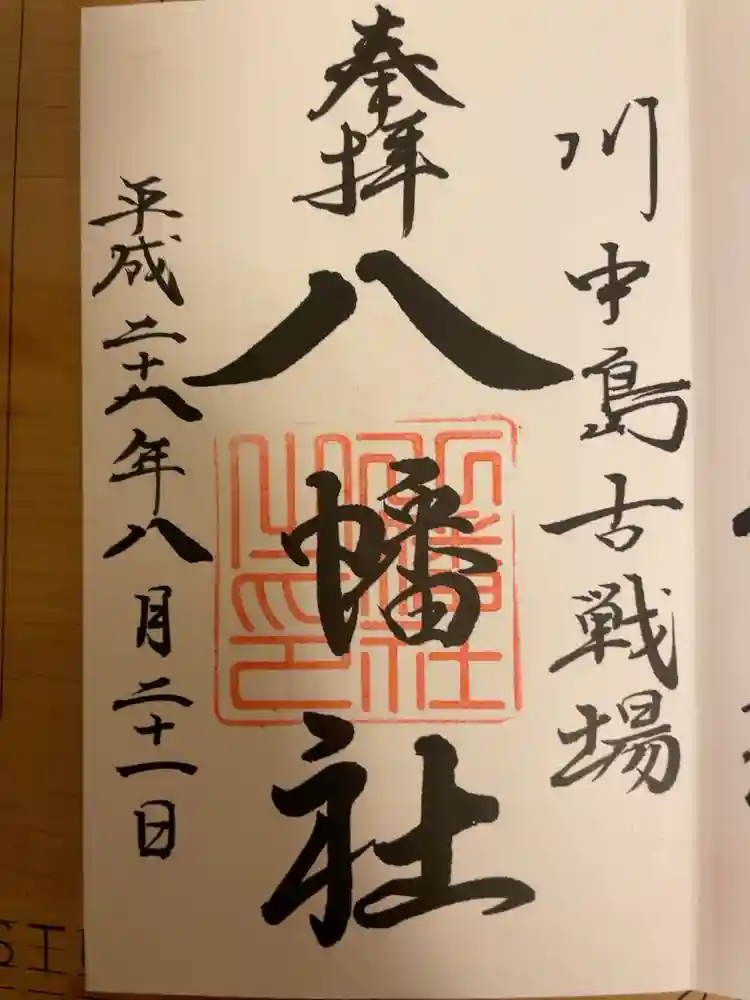 川中島古戦場
奉拝
八幡社
八幡社之印
平成二十八年八月二十一日